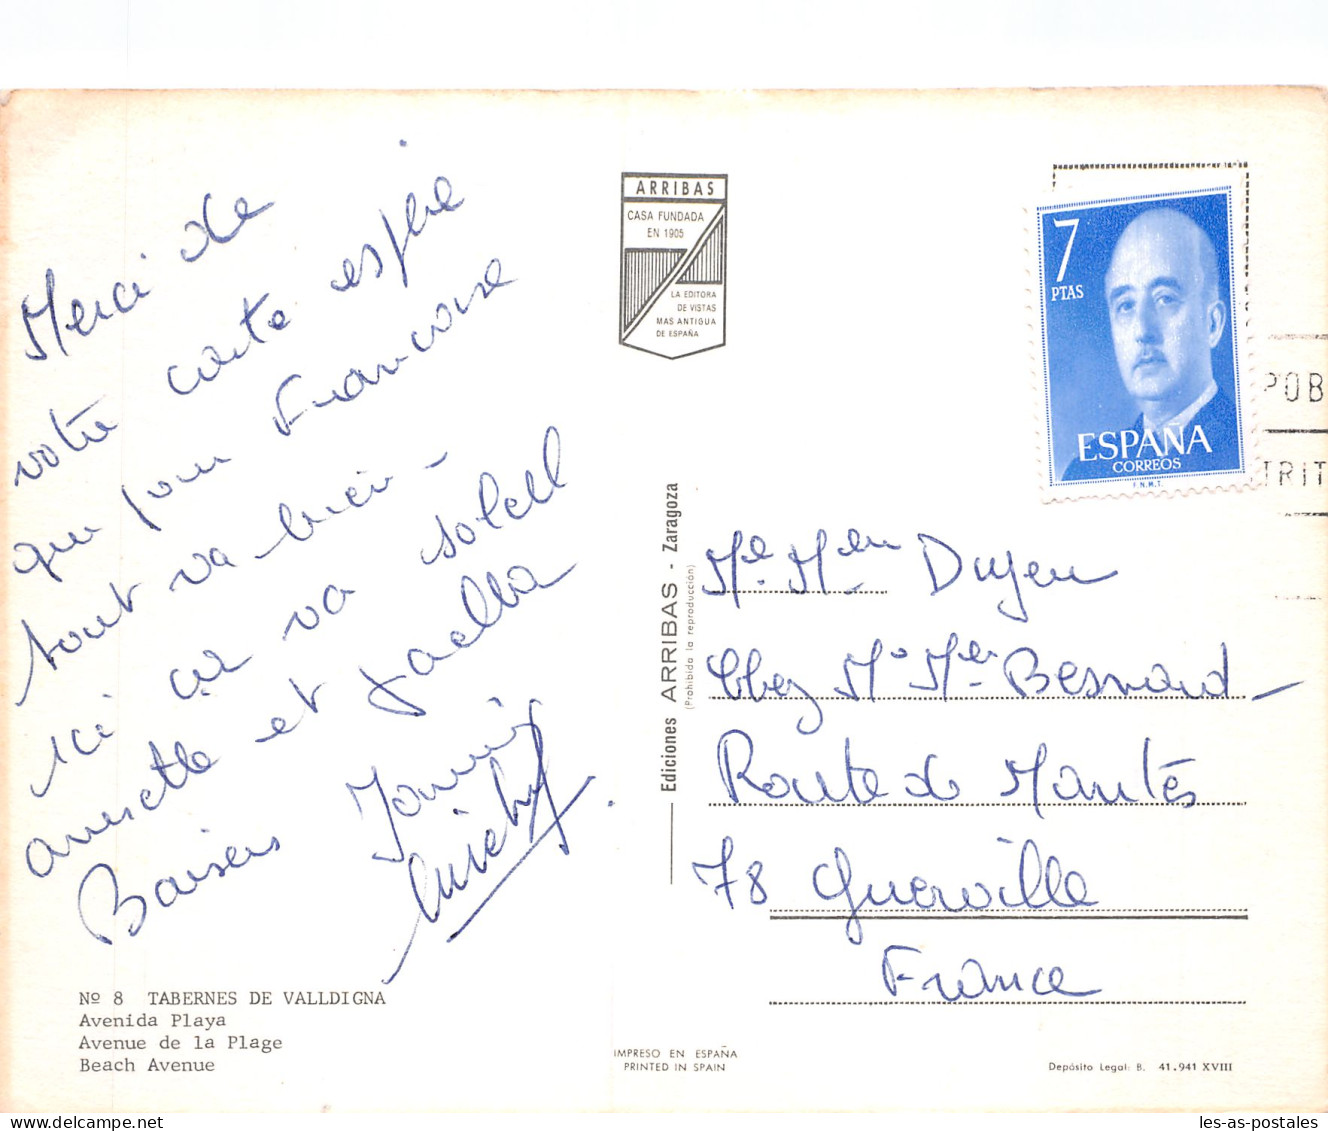 Merci de
votre carte espère
que pour Francoise
tout va bien -
ici ça va soleil
anisette et paella
Baisers
ARRIBAS
CASA FUNDADA
EN 1905
LA EDITORA
DE VISTAS
MAS ANTIGUA
DE ESPAÑA
7
PTAS
ESPAÑA
CORREOS
F.N.M.T.
POB
TRIT
Ediciones ARRIBAS - Zaragoza
(Prohibida la reproducción)
Chez Besnard
Route de Mantes
78 Guerville
France
Nº 8 TABERNES DE VALLDIGNA
Avenida Playa
Avenue de la Plage
Beach Avenue
IMPRESO EN ESPAÑA
PRINTED IN SPAIN
Depósito Legal: B. 41.941 XVIII
les-as-postales